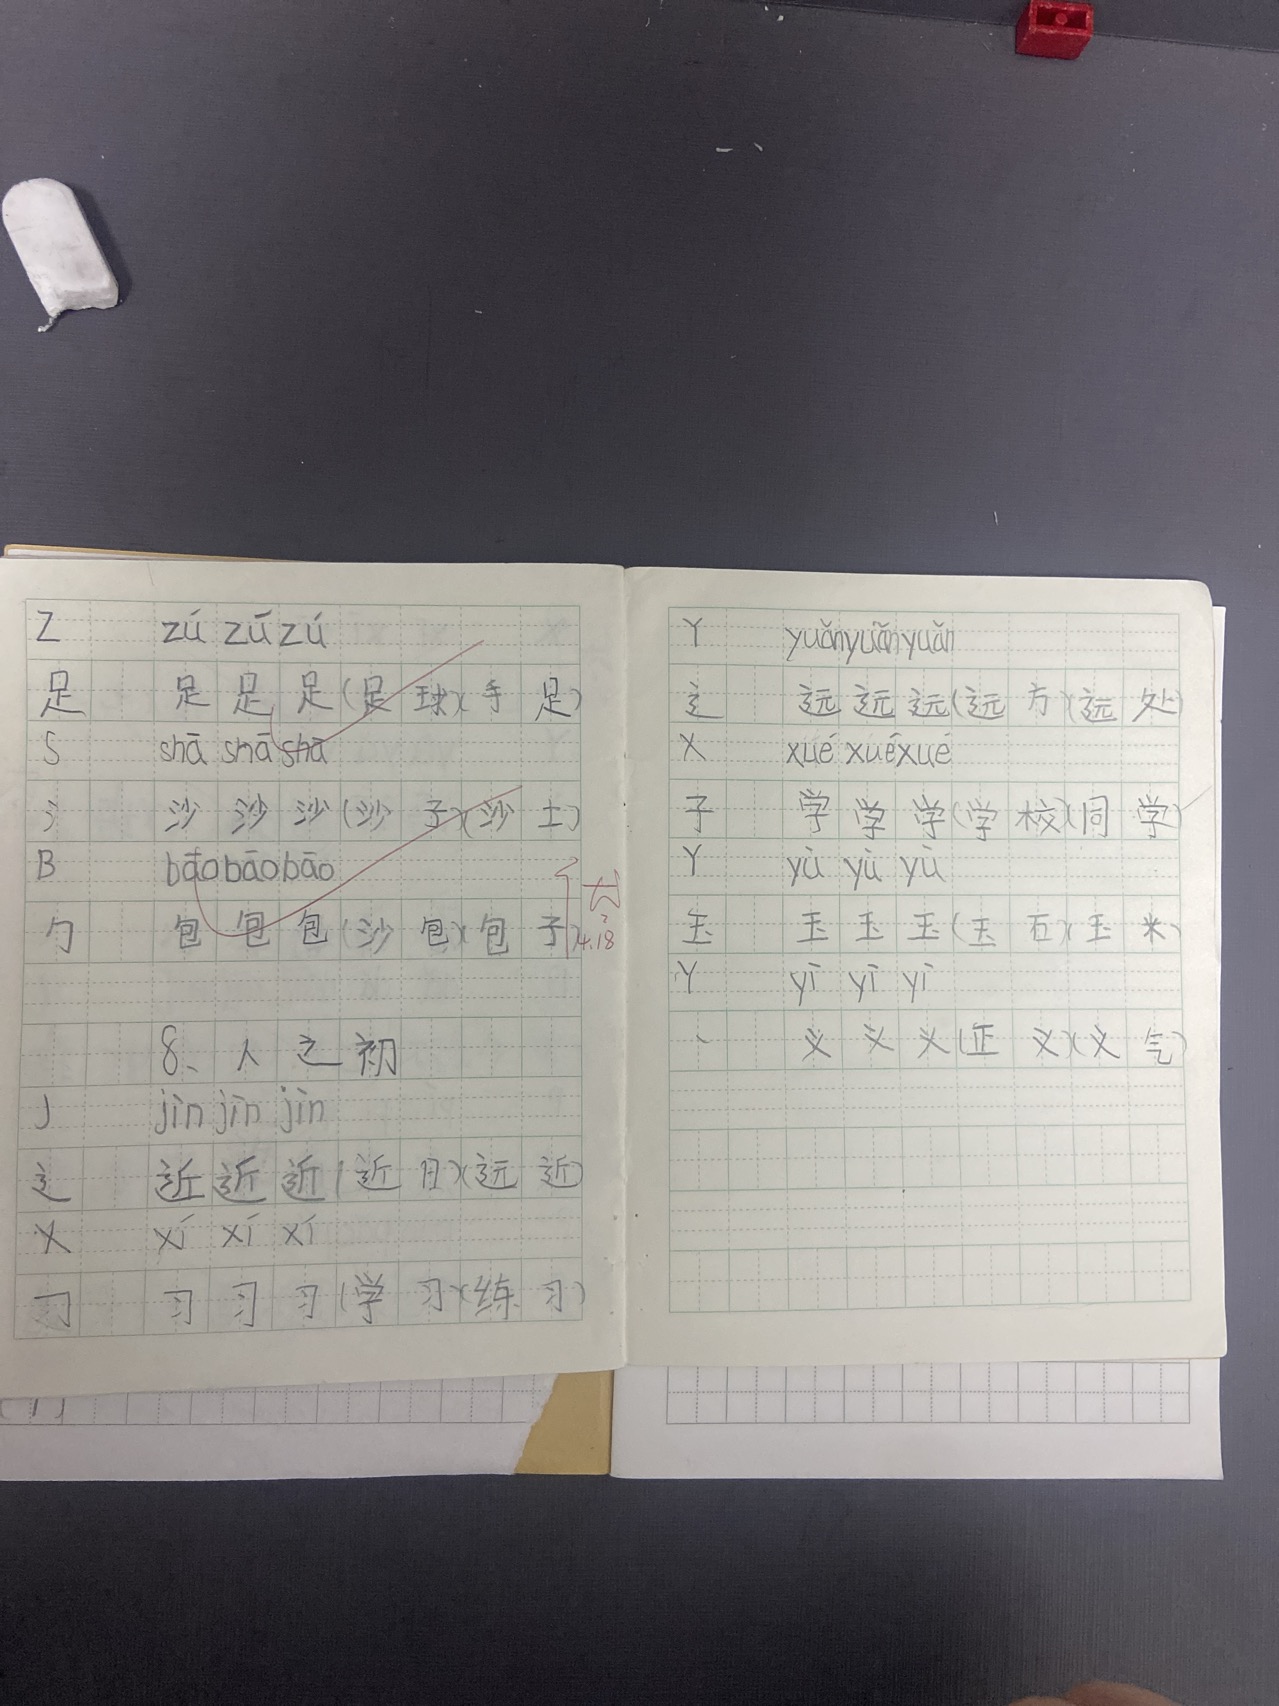 Z zú zú zú
足 足 足 足(足球)(手足)
S shā shā shā
氵 沙 沙 沙(沙子)(沙土)
B bāo bāo bāo
勹 包 包 包(沙包)(包子)
4.18
8、人之初
J jìn jìn jìn
辶 近 近 近(近日)(远近)
X xí xí xí
习 习 习(学习)(练习)
Y yuǎn yuǎn yuǎn
辶 远 远 远(远方)(远处)
X xué xué xué
子 学 学 学(学校)(同学)
Y yù yù yù
玉 玉 玉 玉(玉石)(玉米)
Y yì yì yì
丶 义 义 义(正义)(义气)